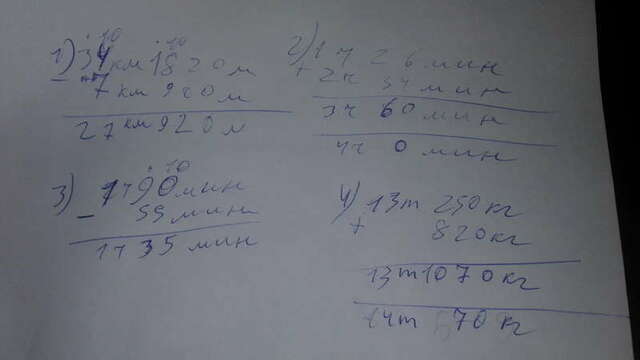 1) 34 км 1820 м
- 7 км 920 м
27 км 920 м
2) 1 ч 26 мин
+ 2ч 34 мин
3ч 60 мин
4ч 0 мин
3) 1ч90мин
- 55 мин
1ч 35 мин
4) 13т 250кг
+ 820кг
13т1070кг
14т 70 кг